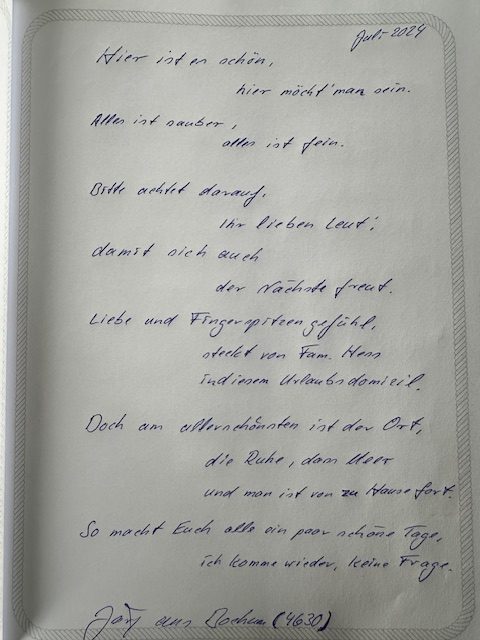 Juli 2024
Hier ist es schön,
hier möcht' man sein.
Alles ist sauber,
alles ist fein.
Bitte achtet darauf,
Ihr lieben Leut',
damit sich auch
der Nächste freut.
Liebe und Fingerspitzengefühl,
steckt von Fam. Hess
in diesem Urlaubsdomizil.
Doch am allerschönsten ist der Ort,
die Ruhe, das Meer
und man ist von zu Hause fort.
So macht Euch alle ein paar schöne Tage,
ich komme wieder, keine Frage.
aus Bochum (4630)